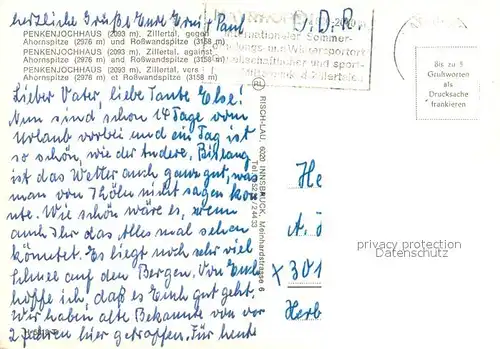 herzliche Grüße Eure Erni + Paul
D.D.R.
PENKENJOCHHAUS (2093 m), Zillertal, gegen
Ahornspitze (2976 m) und Roßwandspitze (3158 m)
PENKENJOCHHAUS (2093 m), Zillertal, against
Ahornspitze (2976 m) and Roßwandspitze (3158 m)
PENKENJOCHHAUS (2093 m), Zillertal, vers
Ahornspitze (2976 m) et Roßwandspitze (3158 m)
Lieber Vater, liebe Tante Else!
Nun sind schon 14 Tage vom
Urlaub vorbei und ein Tag ist
so schön, wie der andere. Bislang
ist das Wetter auch ganz gut, was
man von Thöln nicht sagen kon
nte. Wie schön wäre es, wenn
auch Ihr das alles mal sehen
könntet. Es liegt noch sehr viel
Schnee auf den Bergen. Von Euch
hoffe ich, daß es Euch gut geht.
Wir haben alte Bekannte von vor
2 Jahren hier getroffen. Für heute
RL
RISCH-LAU, 6020 INNSBRUCK, Meinhardstrasse 6
Tel. 05222 / 24433
nationaler Sommer-
ungs- und Wintersportort
Bis zu 5
Grußworten
als
Drucksache
frankieren
He
A. Ö
X 301
Herb
privacy protection
Datenschutz